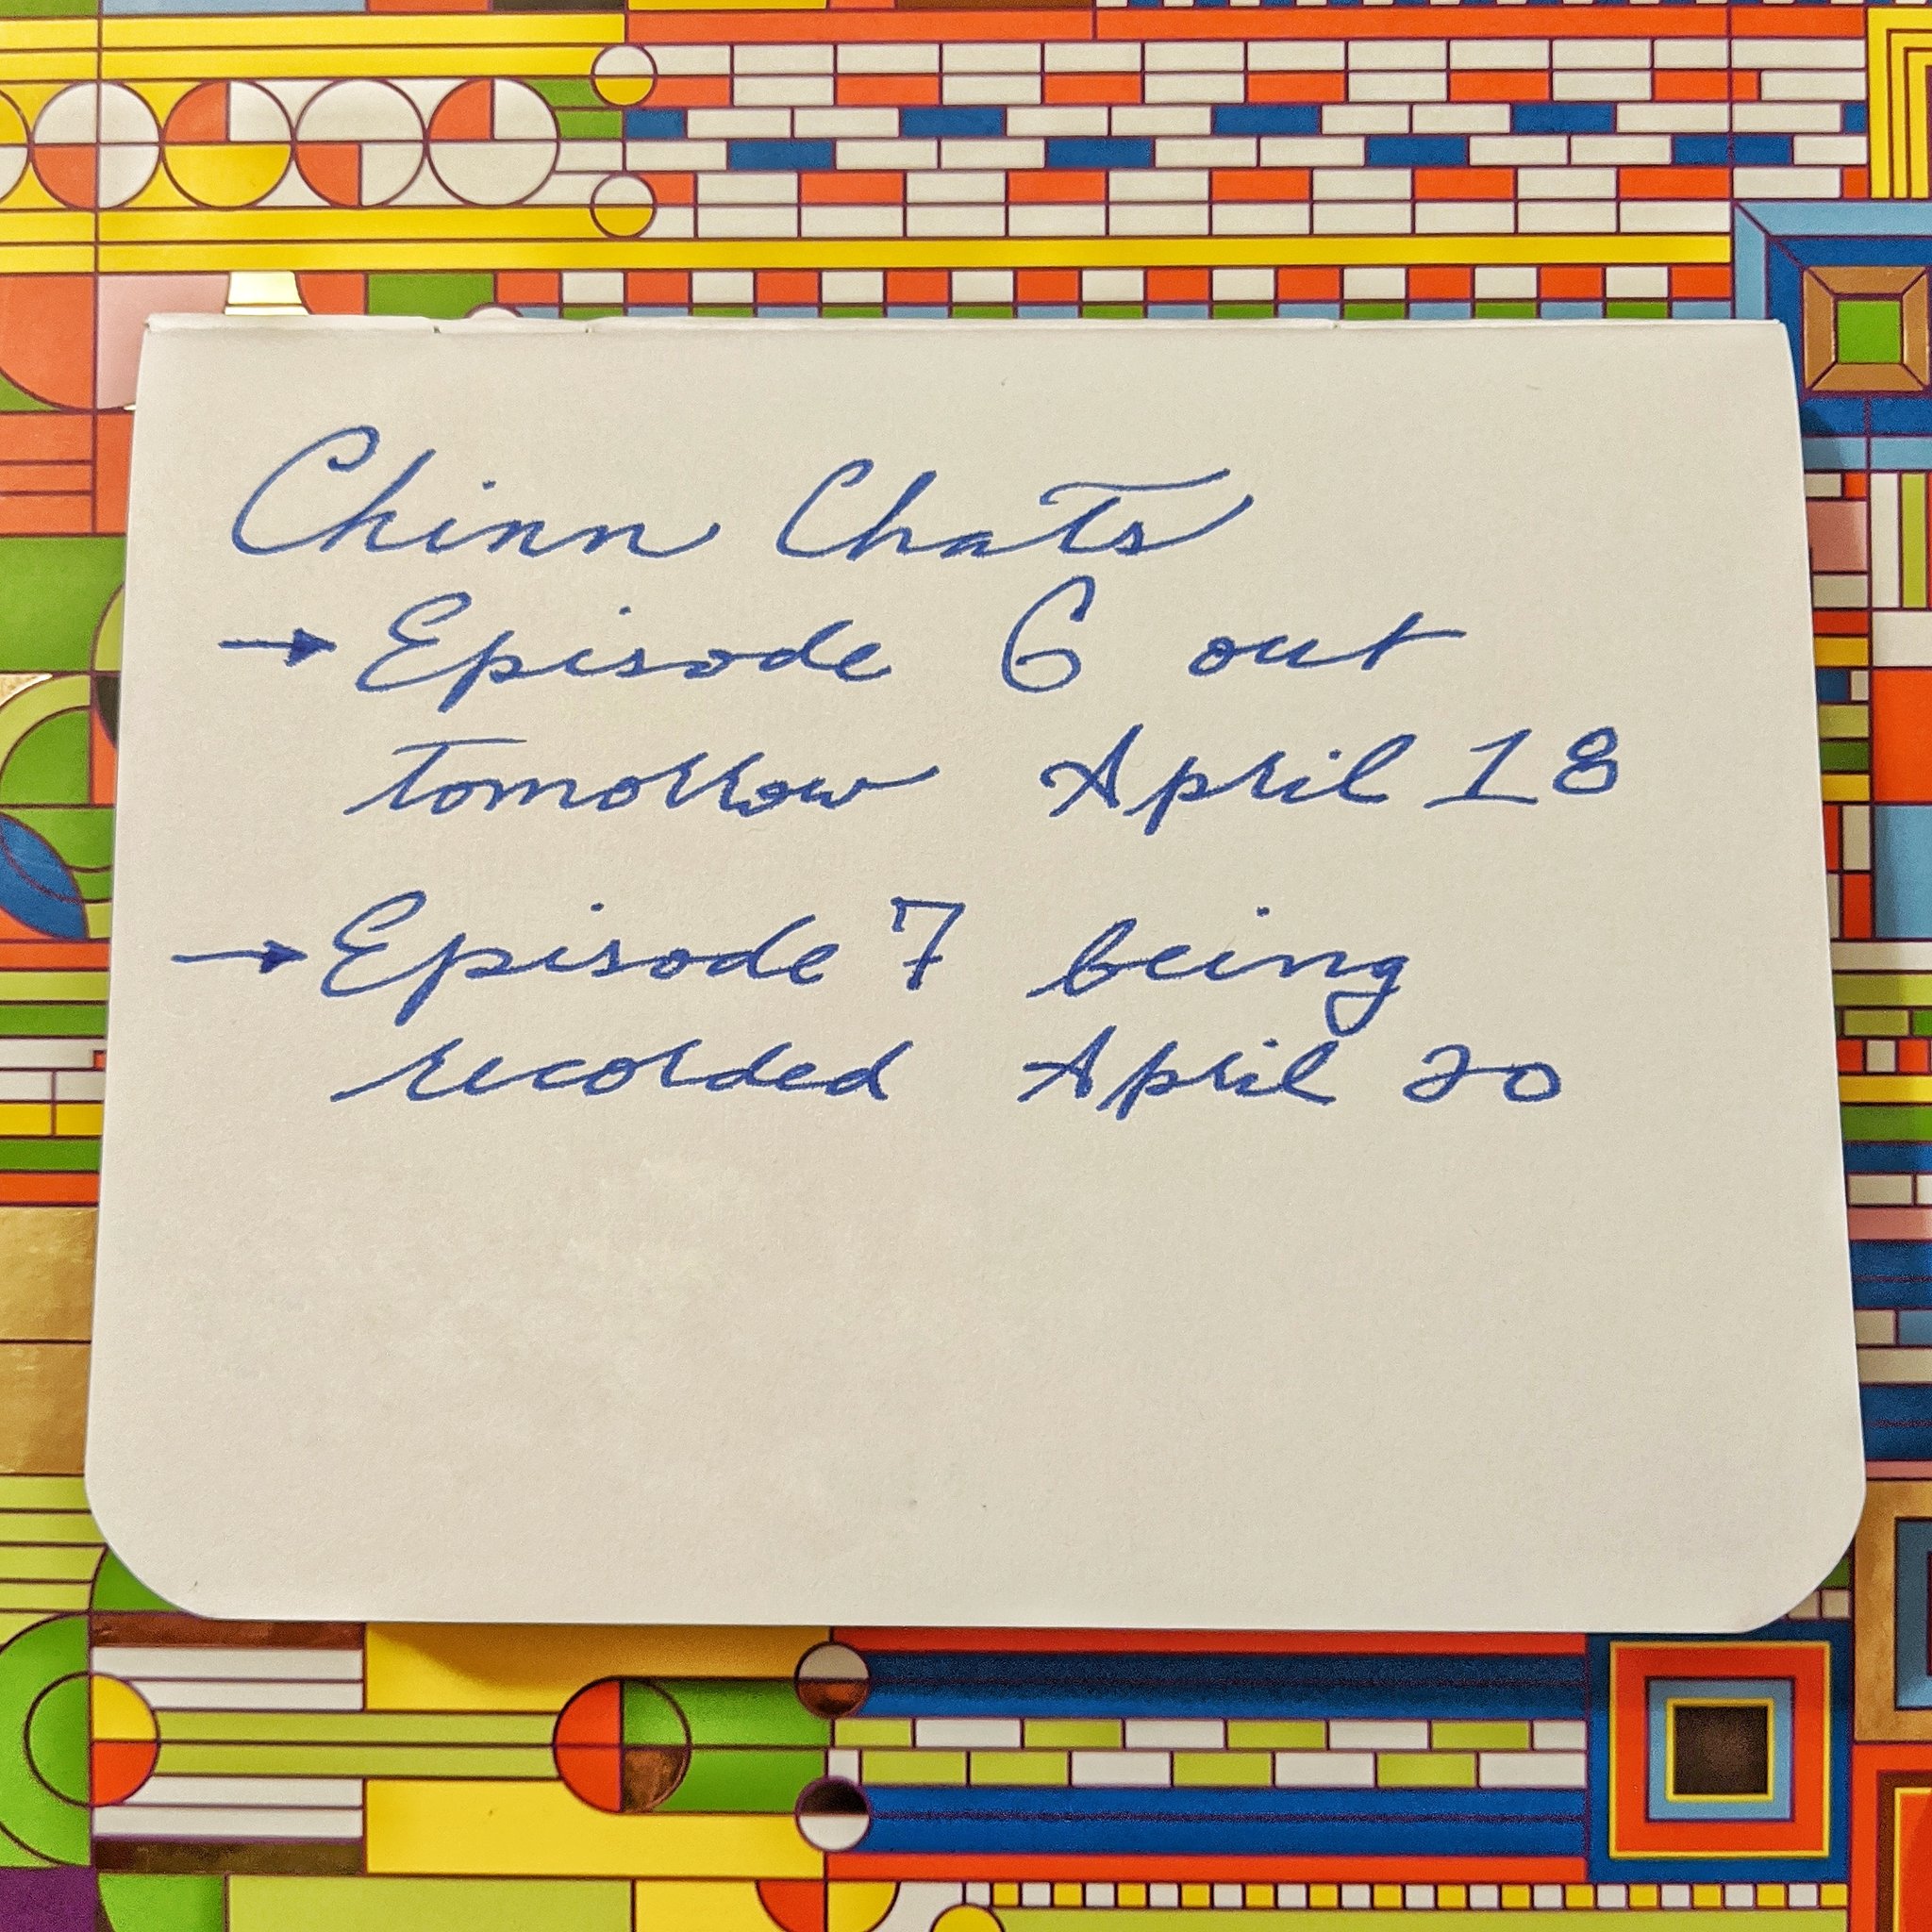 Chinn Chats
→ Episode 6 out
tomorrow April 18
→ Episode 7 being
recorded April 20